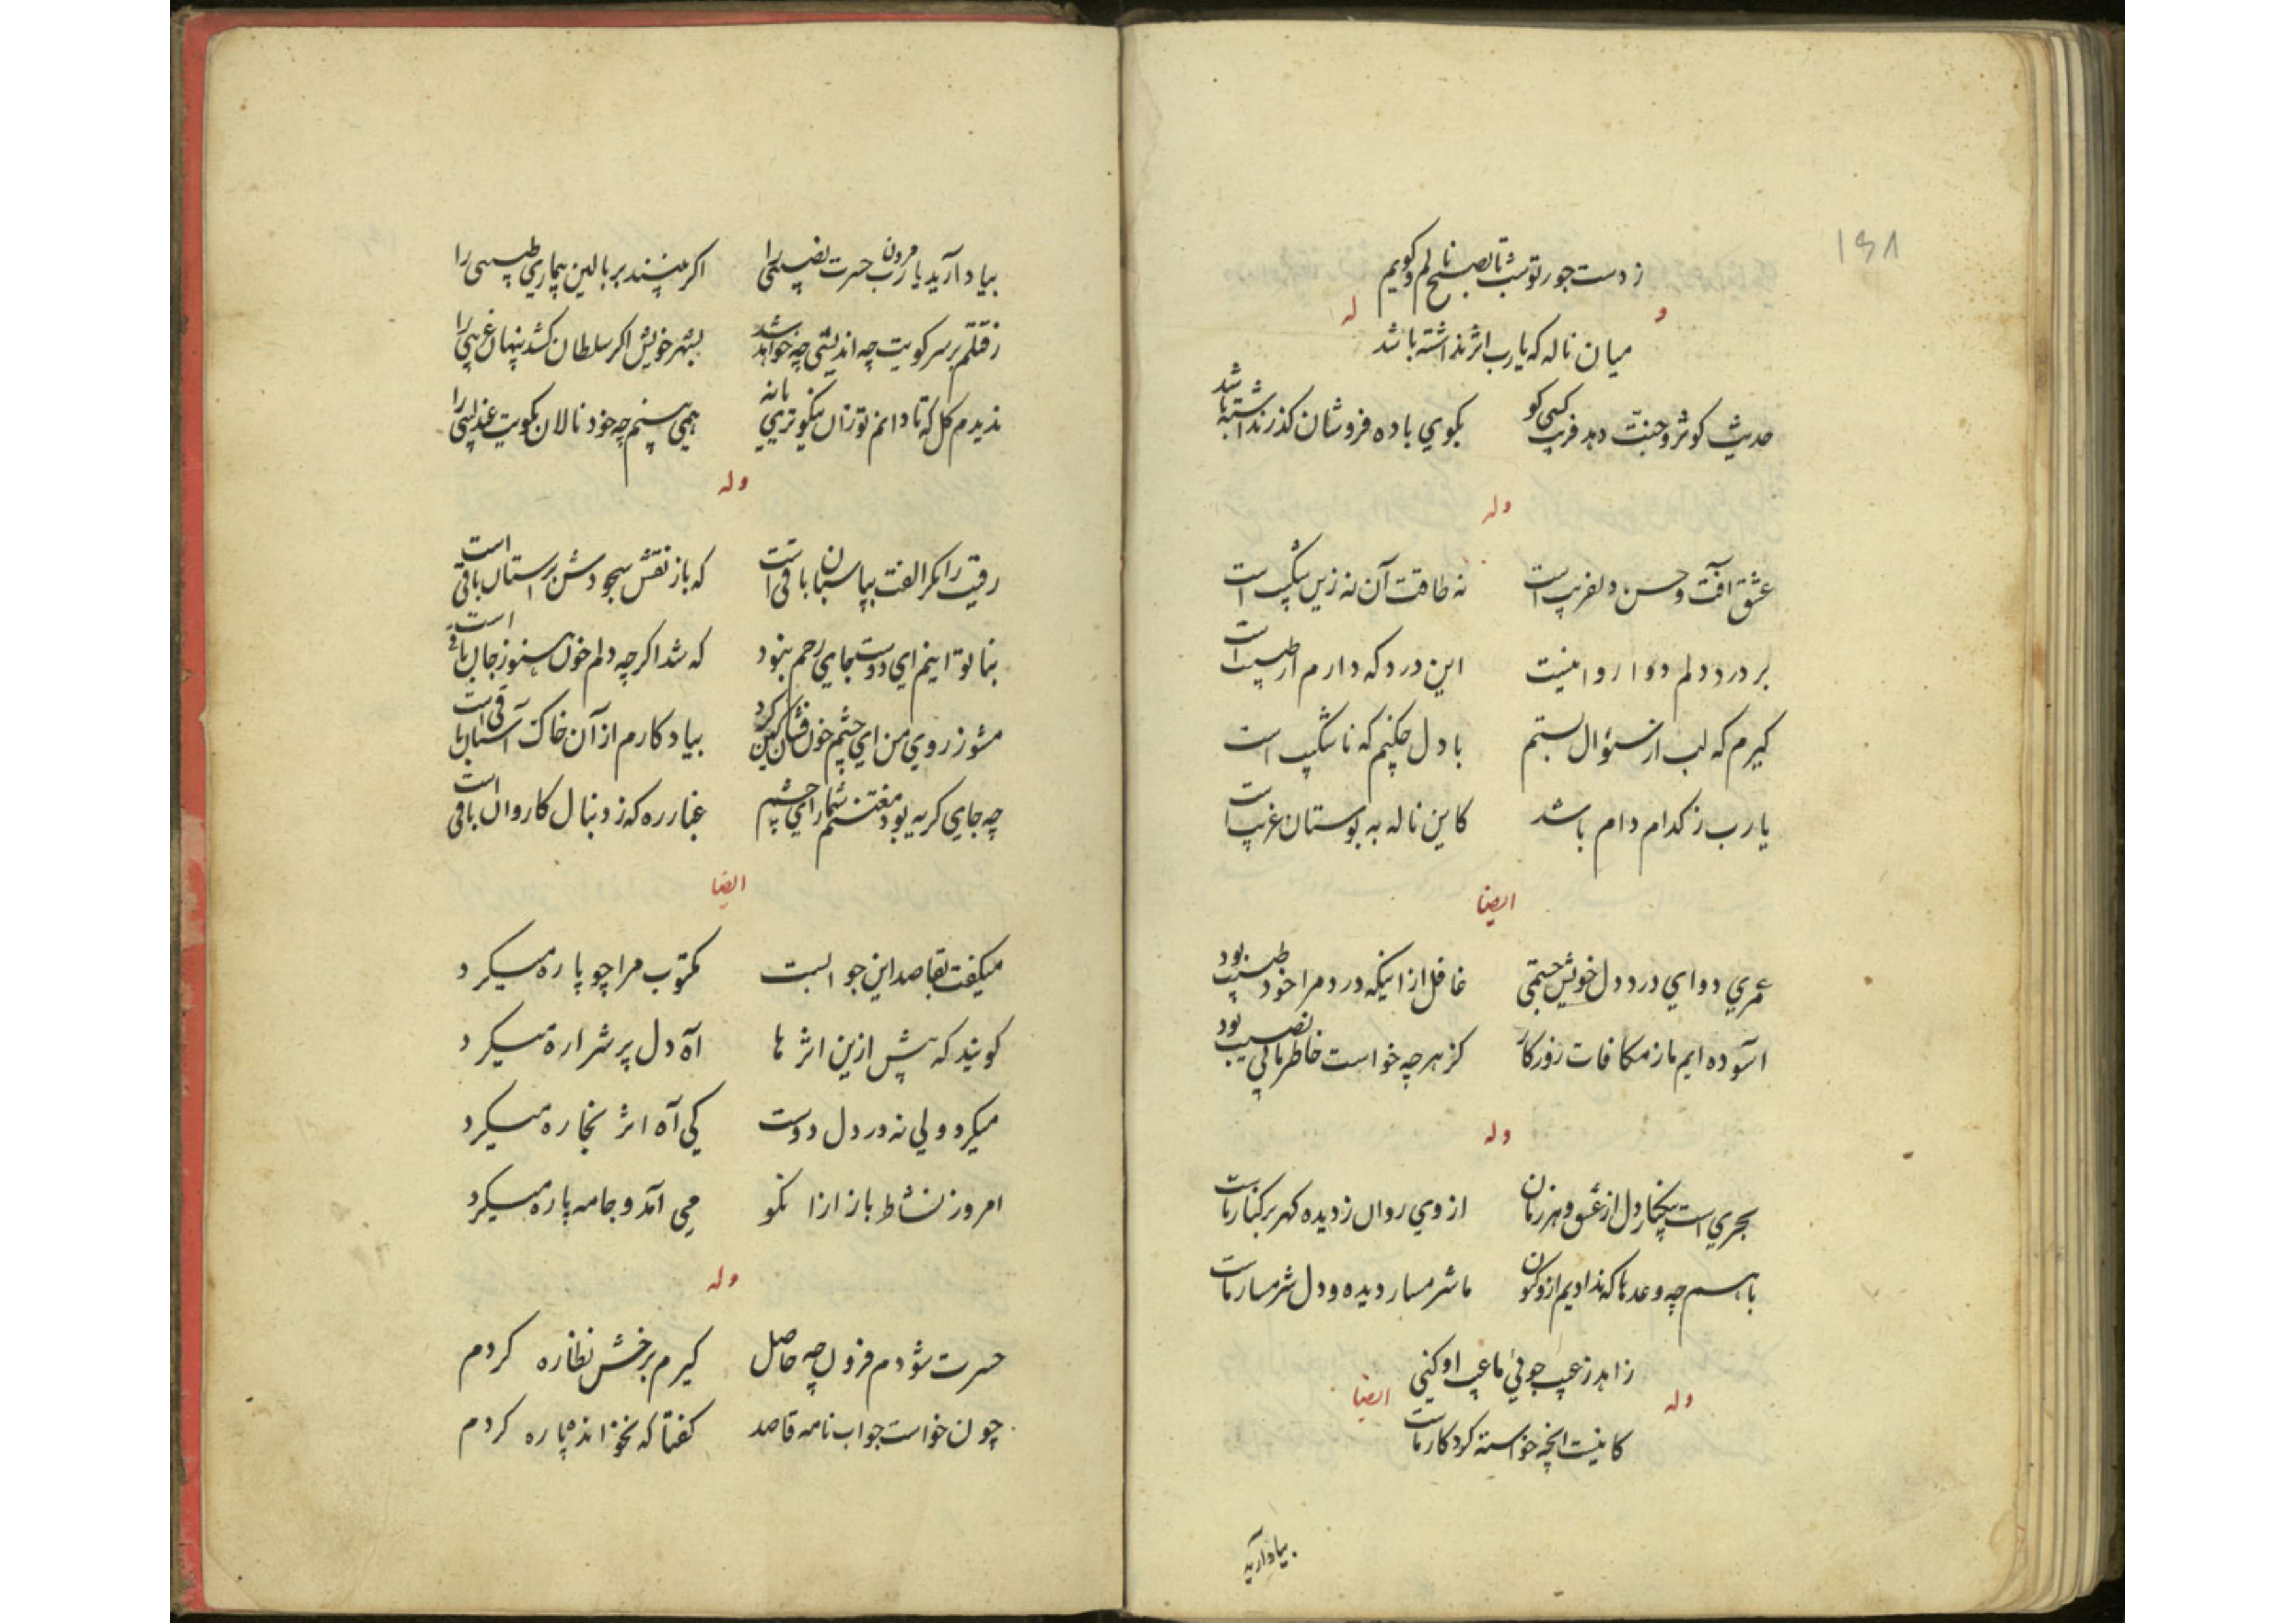 ۱۶۸
ز دست جور تو شب تا بصبح نالم و کویم
و له
میان ناله که یارب اثر نداشته باشد
حدیث کوثر و جنت دهد فریب کسی کو بکوی باده فروشان کذر نداشته باشد
وله
عشق آفت و حسن دلفریب است نه طاقت آن نه زین شکیب است
بر درد دلم دوا روا نیست این درد که دارم از طبیب است
کیرم که لب از سئوال بستم با دل چکنم که ناشکیب است
یارب ز کدام دام باشد کاین ناله به بوستان غریب است
ایضا
عمری دوای درد دل خویش جستمی غافل از اینکه درد مرا خود طبیب بود
آسوده ایم ما ز مکافات روزکار کز هر چه خواست خاطر ما بی نصیب بود
وله
بحری است بیکنار دل از عشق و هر زمان از وی روان ز دیده کهر بر کنار ماست
با هم چه وعدها که ندادیم از و کنون ما شرمسار دیده و دل شرمسار ماست
زاهد ز عیب جوئی ما عیب او کنی
وله ایضا
کانیست انچه خواسته کردکار ماست
بیاد آرید
بیاد آرید یارب مردن حسرت نصیبی را اکر بینند بر بالین بیماری طبیبی را
ز قتلم بر سر کویت چه اندیشی چه خواهد شد بشهر خویش اکر سلطان کشد پنهان غریبی را
ندیدم کل که تا دانم تو زان نیکوتری یا نه همی بینم چه خود نالان بکویت عندلیبی را
وله
رقیب را مکر الفت بپاسبان باقی است که باز نقش سجودش بر آستان باقی است
بنا بوتا بینم ای دوست جای رحم نبود که شد اکر چه دلم خون هنوز جان باقی است
مشو ز روی من ای چشم خون فشان کرد بیادکارم از آن خاک آستان باقی است
چه جای کریه بود مغتنم شمار ای چشم غبار ره که ز دنبال کاروان باقی است
ایضا
میکفت بقاصد این جوابست مکتوب مرا چو پاره میکرد
کویند که پیش ازین اثر ها آه دل پر شراره میکرد
میکرد ولی نه در دل دوست کی آه اثر بخاره میکرد
امروز نشاط باز از آن کو می آمد و جامه پاره میکرد
وله
حسرت شودم فزون چه حاصل کیرم برخش نظاره کردم
چون خواست جواب نامه قاصد کفتا که نخوانده پاره کردم